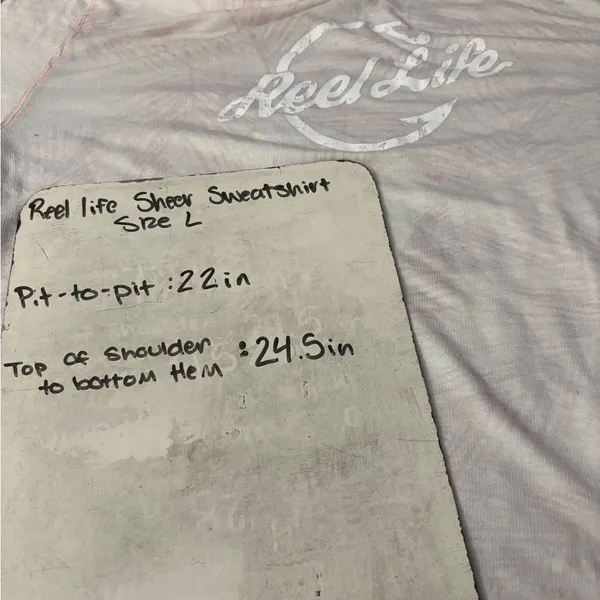 Reel Life
Reel life Sheer Sweatshirt
Size L
Pit-to-pit : 22in
Top of Shoulder : 24.5in
to bottom Hem